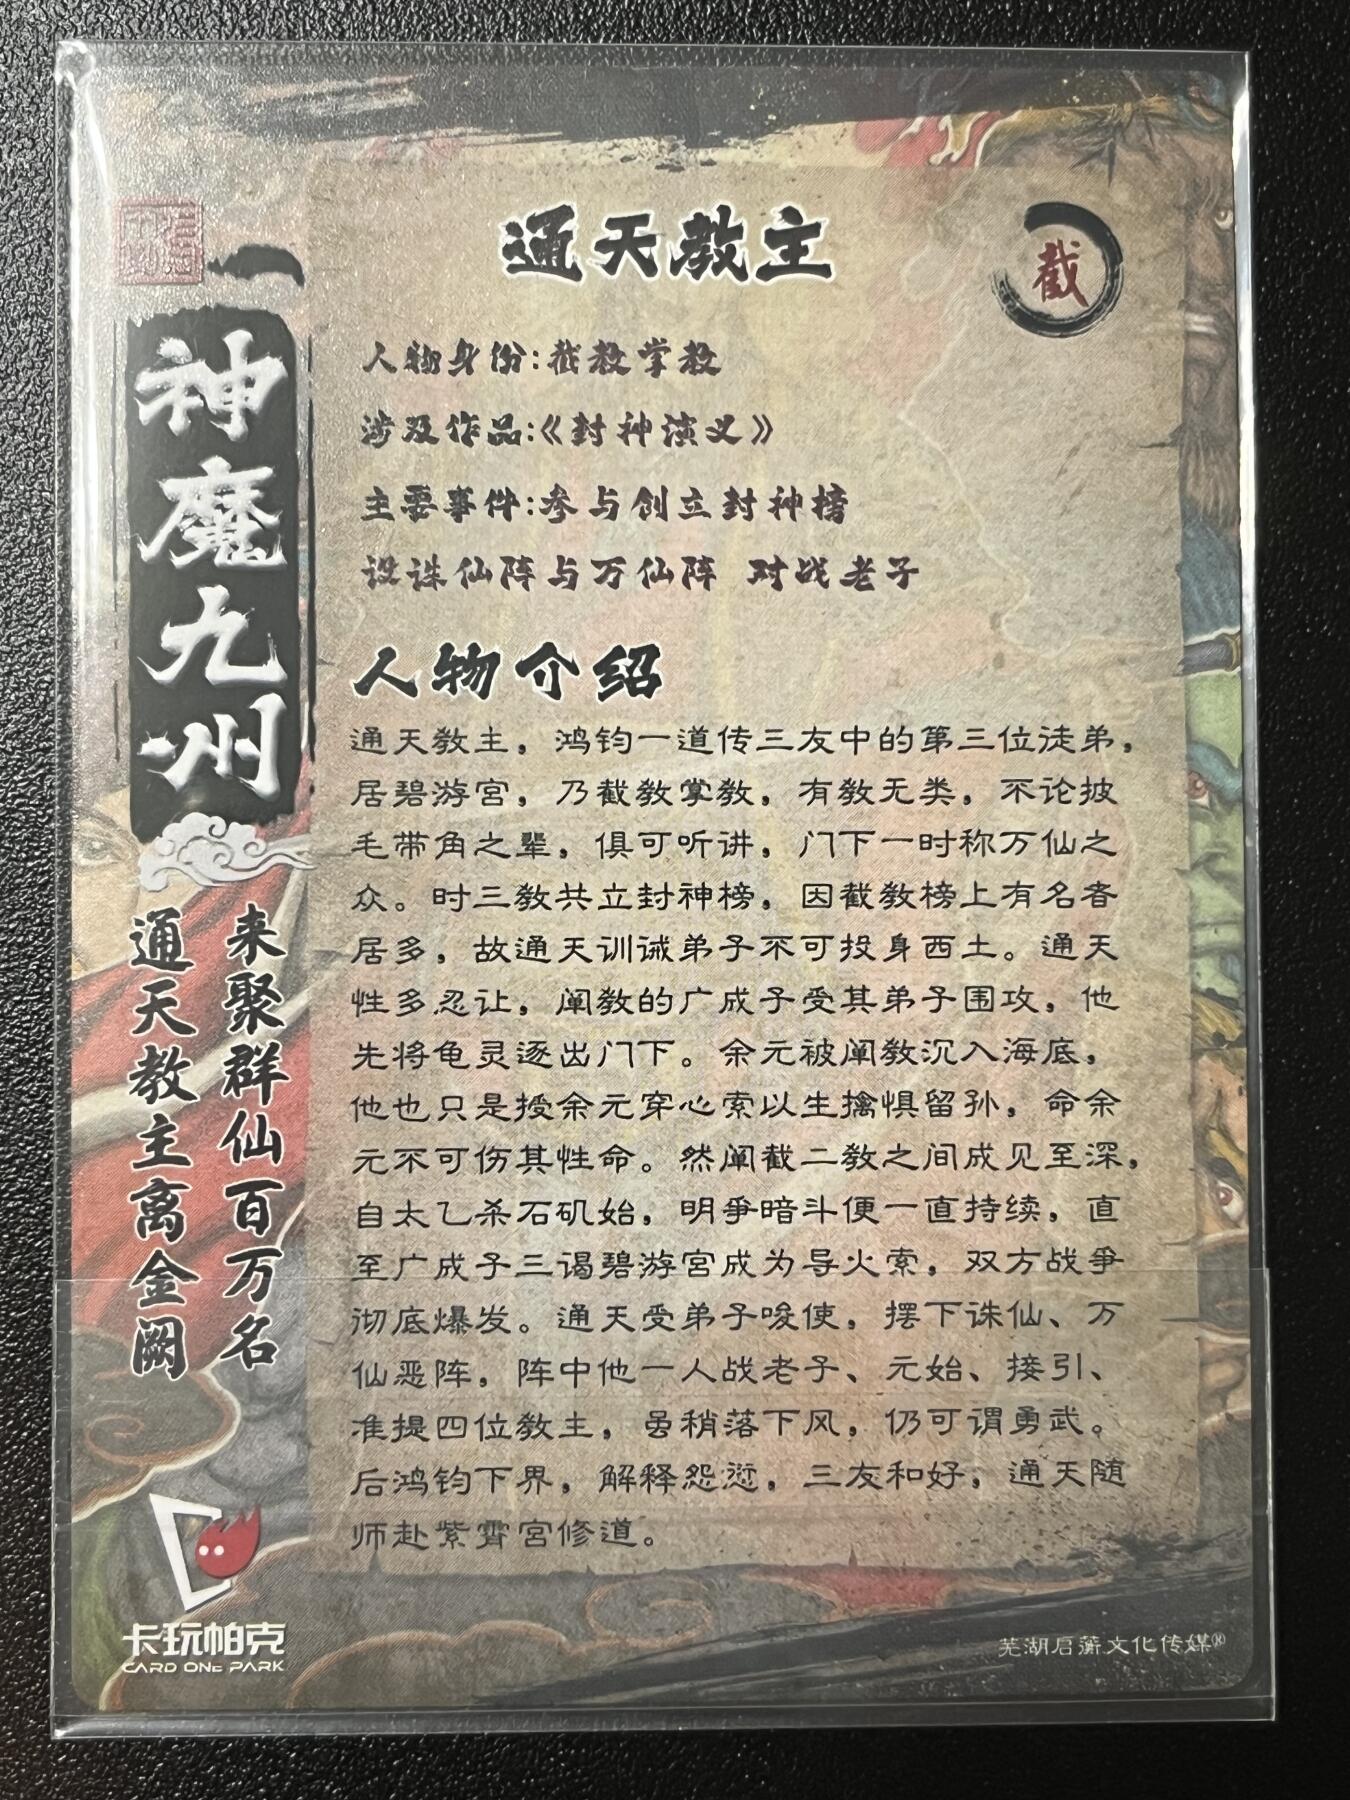 通天教主
截
人物身份:截教掌教
涉及作品:《封神演义》
主要事件:参与创立封神榜
设诛仙阵与万仙阵 对战老子
人物介绍
通天教主，鸿钧一道传三友中的第三位徒弟，
居碧游宫，乃截教掌教，有教无类，不论披
毛带角之辈，俱可听讲，门下一时称万仙之
众。时三教共立封神榜，因截教榜上有名者
居多，故通天训诫弟子不可投身西土。通天
性多忍让，阐教的广成子受其弟子围攻，他
先将龟灵逐出门下。余元被阐教沉入海底，
他也只是授余元穿心索以生擒惧留孙，命余
元不可伤其性命。然阐截二教之间成见至深，
自太乙杀石矶始，明争暗斗便一直持续，直
至广成子三谒碧游宫成为导火索，双方战争
彻底爆发。通天受弟子唆使，摆下诛仙、万
仙恶阵，阵中他一人战老子、元始、接引、
准提四位教主，虽稍落下风，仍可谓勇武。
后鸿钧下界，解释怨愆，三友和好，通天随
师赴紫霄宫修道。
神魔九州
来聚群仙百万名
通天教主离金阙
卡玩帕克
CARD ONE PARK
芜湖启蘅文化传媒®